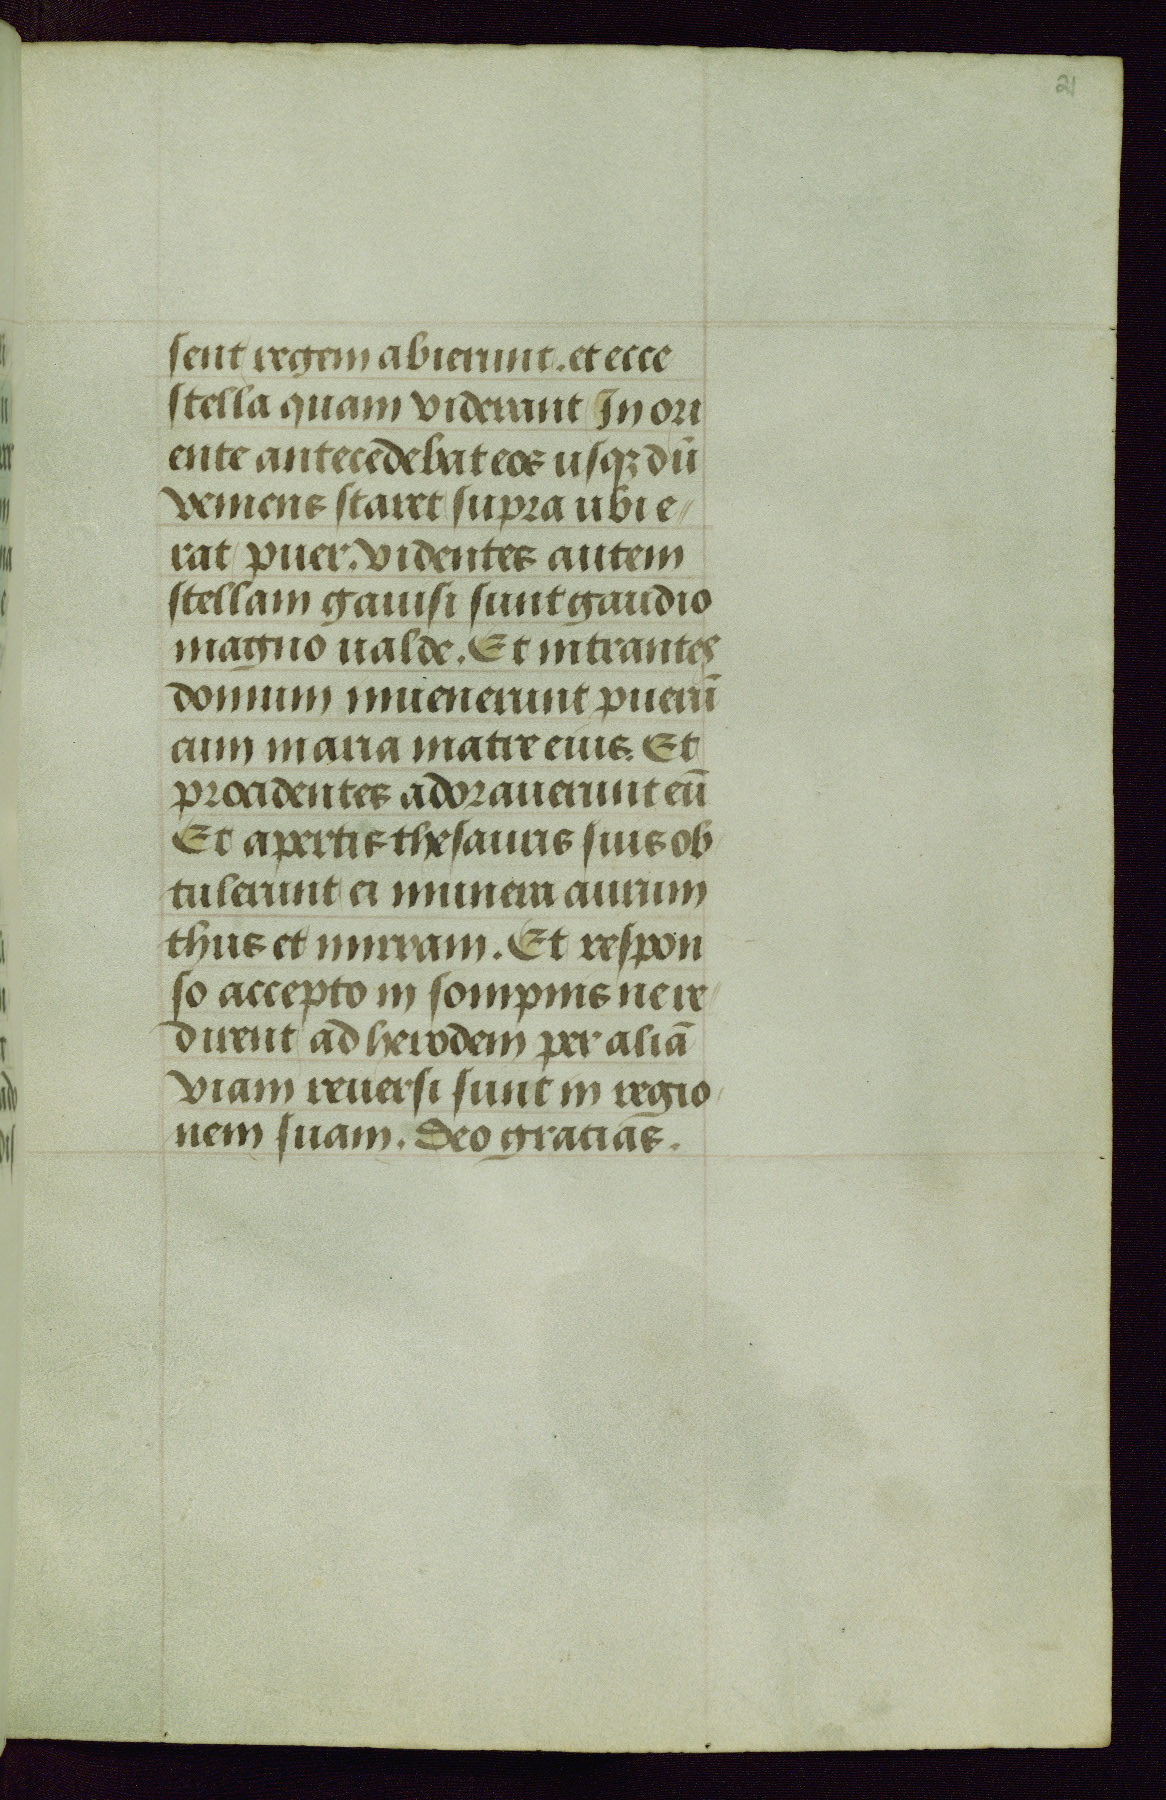 21
sent regem abierunt. et ecce
stella quam viderant In ori
ente antecedebat eos usqꝫ dū
veniens staret supra ubi e//
rat puer. videntes autem
stellam gauisi sunt gaudio
magno ualde. Et intrantes
domum inuenerunt puerū
cum maria matre eius. Et
procidentes adorauerunt eū
Et apertis thesauris suis ob
tulerunt ei munera aurum
thus et mirram. Et respon
so accepto in sompnis ne re
dirent ad herodem per aliā
viam reuersi sunt in regio
nem suam. Deo gracias.